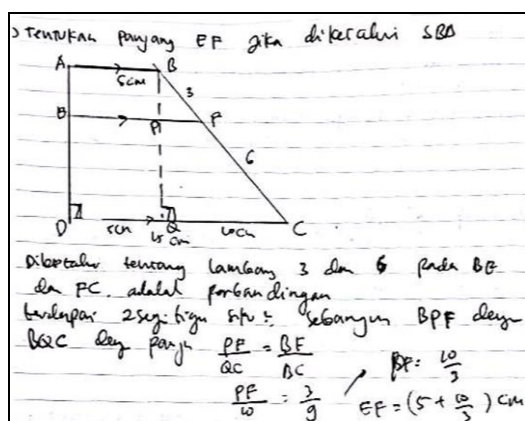 ) Tentukan panjang EF jika diketahui SBB
A B
5cm 3
B P F
6
D 5cm Q 10cm C
15 cm
Diketahui tentang lambang 3 dan 6 pada BF
dan FC. adalah perbandingan
terdapat 2 segitiga siku² sebangun BPF dengan
BQC dengan panjang PF/QC = BF/BC
PF/10 = 3/9 PF = 10/3
EF = (5 + 10/3) cm